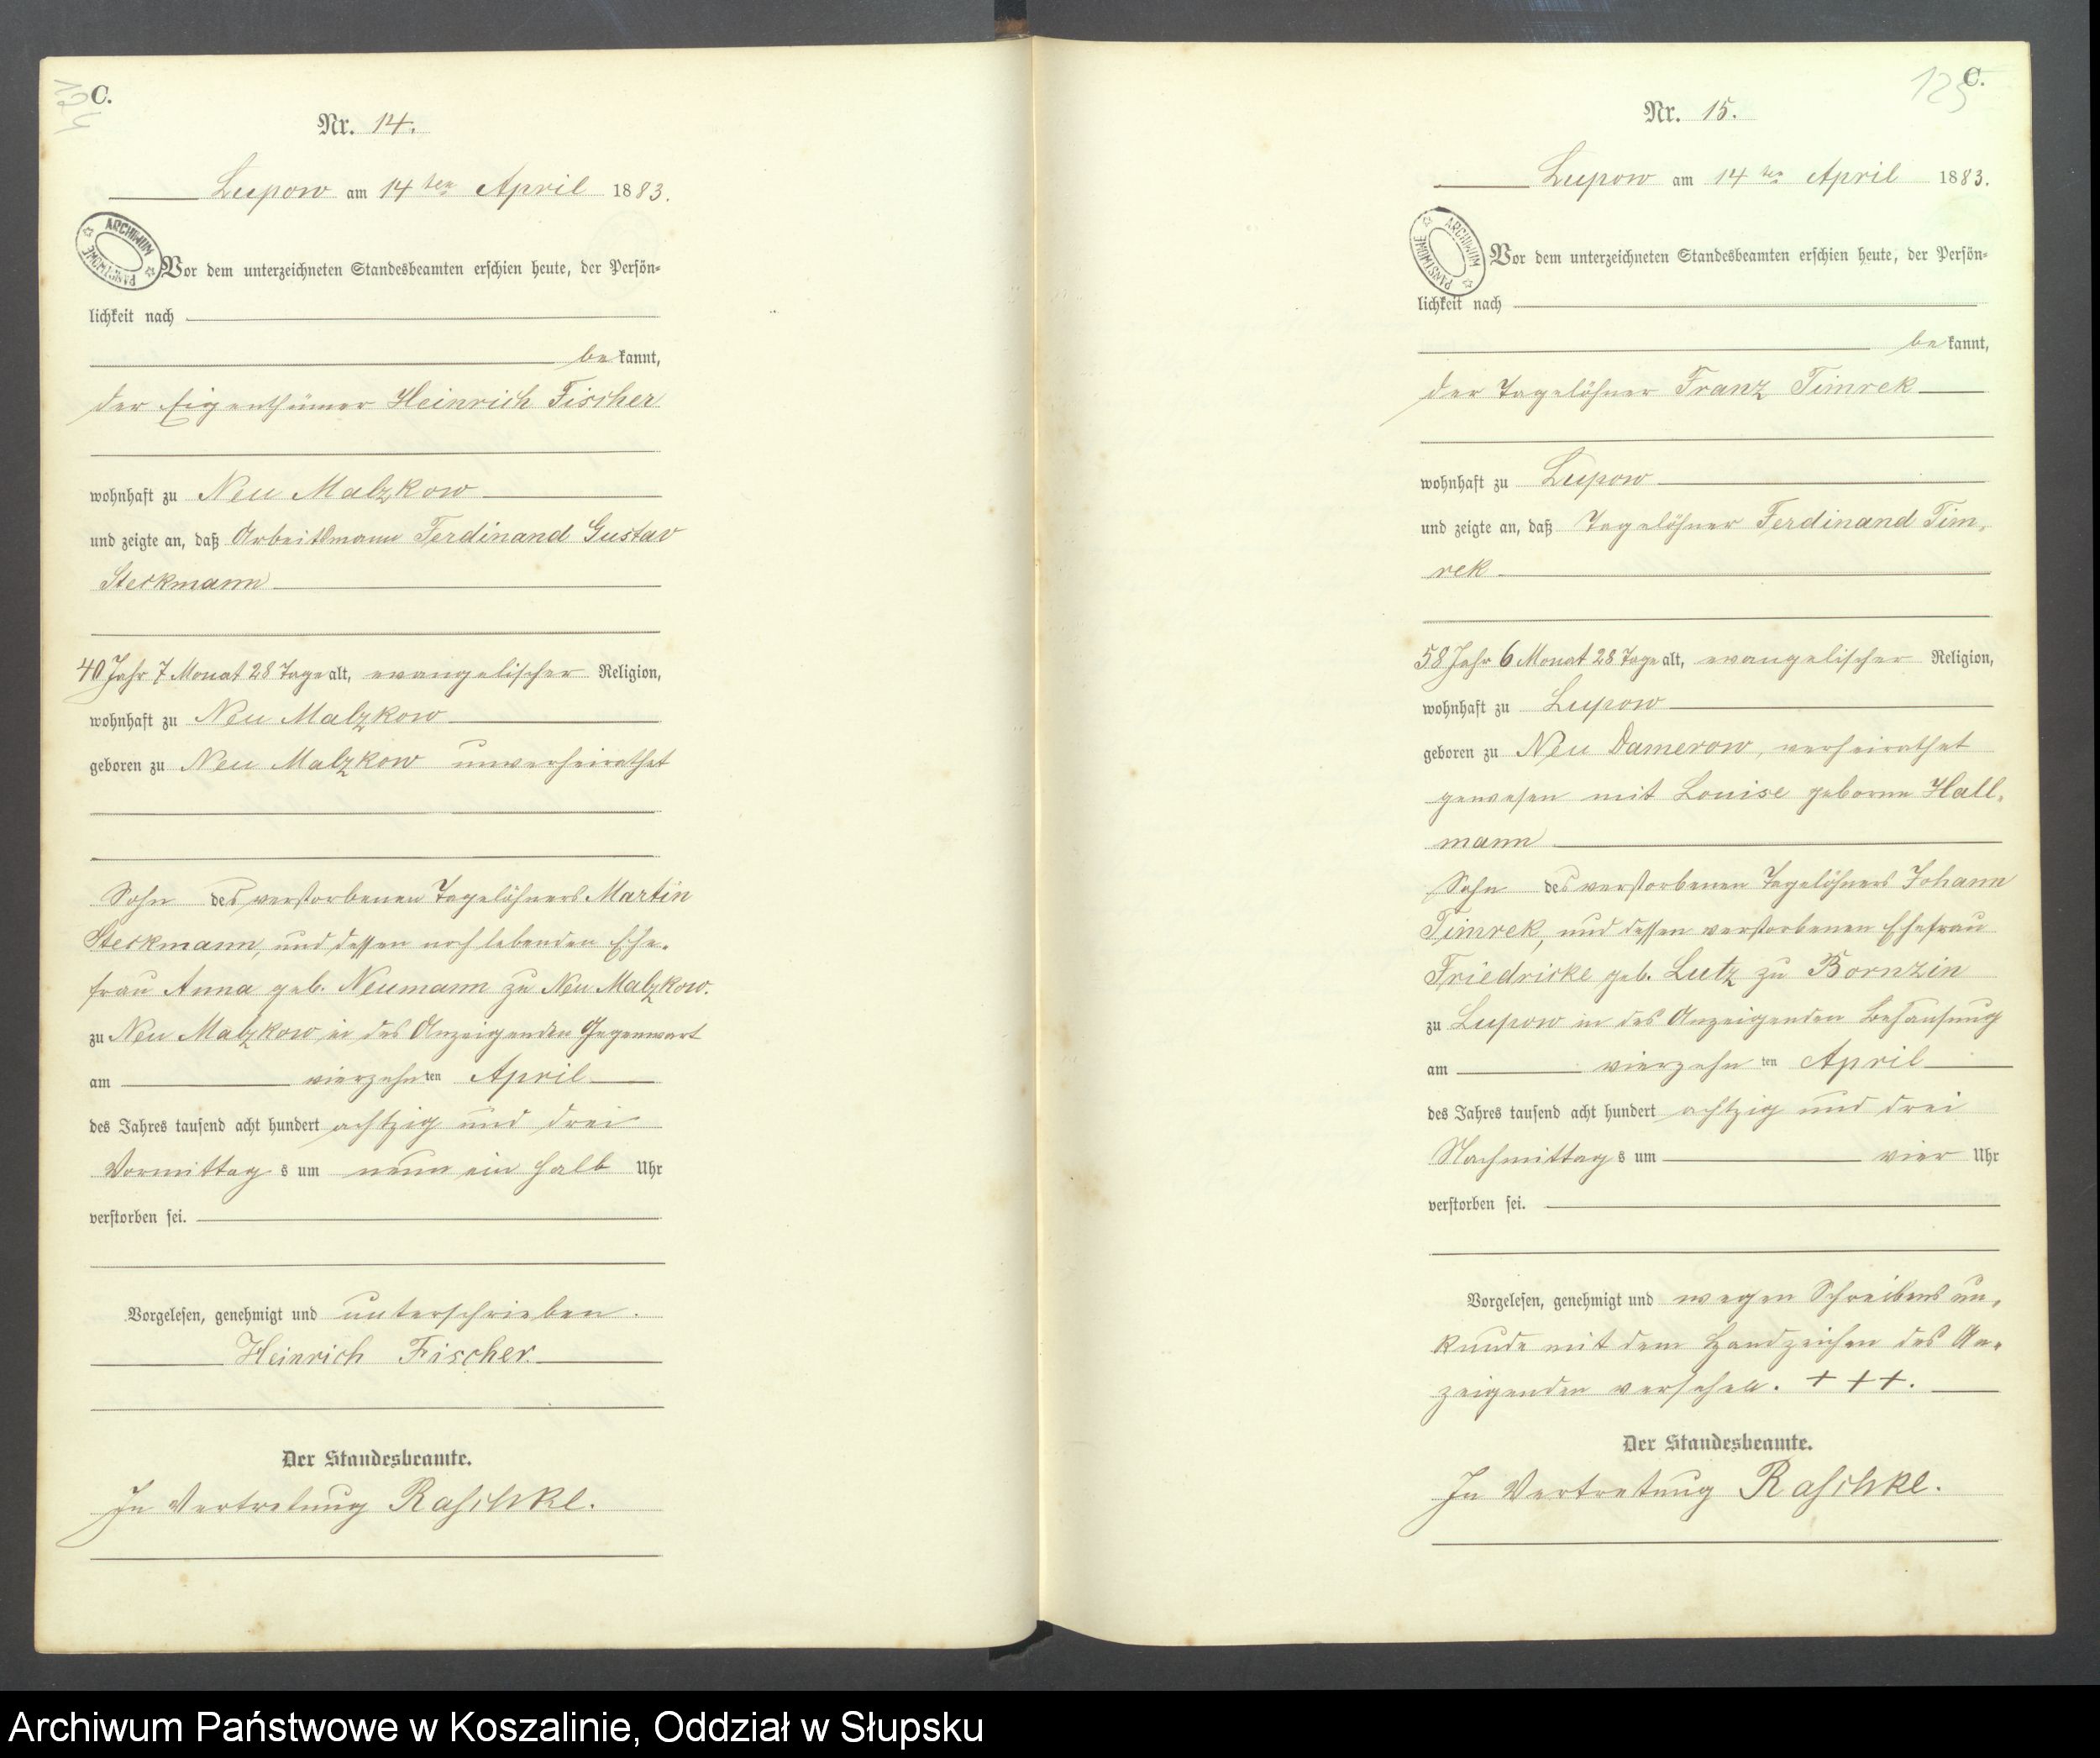 C.
Nr. 14.
Lupow am 14ten April 1883.
ARCHIWUM PAŃSTWOWE
Vor dem unterzeichneten Standesbeamten erschien heute, der Persön-
lichkeit nach
bekannt,
der Eigenthümer Heinrich Fischer
wohnhaft zu Neu Malzkow
und zeigte an, daß Arbeitsmann Ferdinand Gustav
Steckmann
40 Jahr 7 Monat 28 Tage alt, evangelischer Religion,
wohnhaft zu Neu Malzkow
geboren zu Neu Malzkow unverheirathet
Sohn des verstorbenen Tagelöhners Martin
Steckmann, und dessen noch lebenden Ehe-
frau Anna geb. Neumann zu Neu Malzkow.
zu Neu Malzkow in des Anzeigenden Gegenwart
am vierzehnten April
des Jahres tausend acht hundert achtzig und drei
Vormittags um neun ein halb Uhr
verstorben sei.
Vorgelesen, genehmigt und unterschrieben.
Heinrich Fischer.
Der Standesbeamte.
In Vertretung Raschke.
125
C.
Nr. 15.
Lupow am 14ten April 1883.
ARCHIWUM PAŃSTWOWE
Vor dem unterzeichneten Standesbeamten erschien heute, der Persön-
lichkeit nach
bekannt,
der Tagelöhner Franz Timrek
wohnhaft zu Lupow
und zeigte an, daß Tagelöhner Ferdinand Tim-
rek
58 Jahr 6 Monat 28 Tage alt, evangelischer Religion,
wohnhaft zu Lupow
geboren zu Neu Damerow, verheirathet
gewesen mit Louise geborne Hall-
mann
Sohn des verstorbenen Tagelöhners Johann
Timrek, und dessen verstorbenen Ehefrau
Friedricke geb. Lutz zu Bornzin
zu Lupow in des Anzeigenden Behausung
am vierzehnten April
des Jahres tausend acht hundert achtzig und drei
Nachmittags um vier Uhr
verstorben sei.
Vorgelesen, genehmigt und wegen Schreibens un-
kunde mit dem Handzeichen des An-
zeigenden versehen. + + +.
Der Standesbeamte.
In Vertretung Raschke.
Archiwum Państwowe w Koszalinie, Oddział w Słupsku